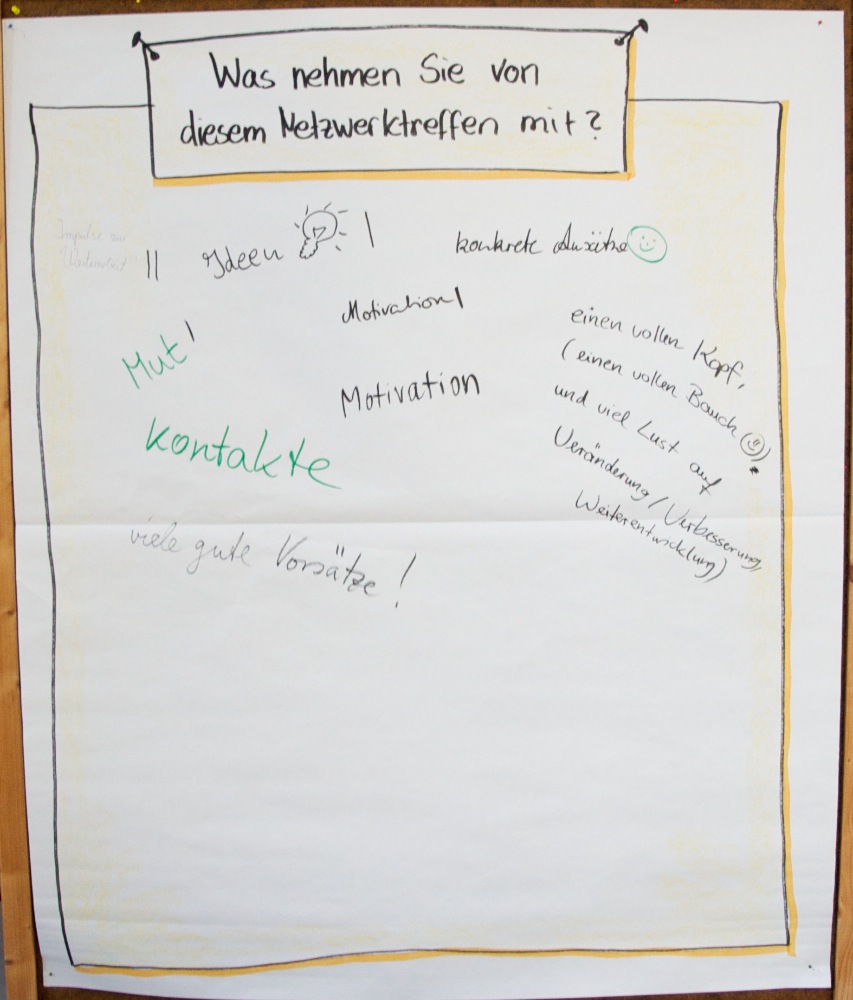 Was nehmen Sie von
diesem Netzwerktreffen mit?
Impulse zur
Weiterarbeit
|| Ideen |
konkrete Ansätze
Motivation |
Mut |
Motivation
Kontakte
einen vollen Kopf,
(einen vollen Bauch ☺).
und viel Lust auf
Veränderung / Verbesserung,
Weiterentwicklung)
viele gute Vorsätze!